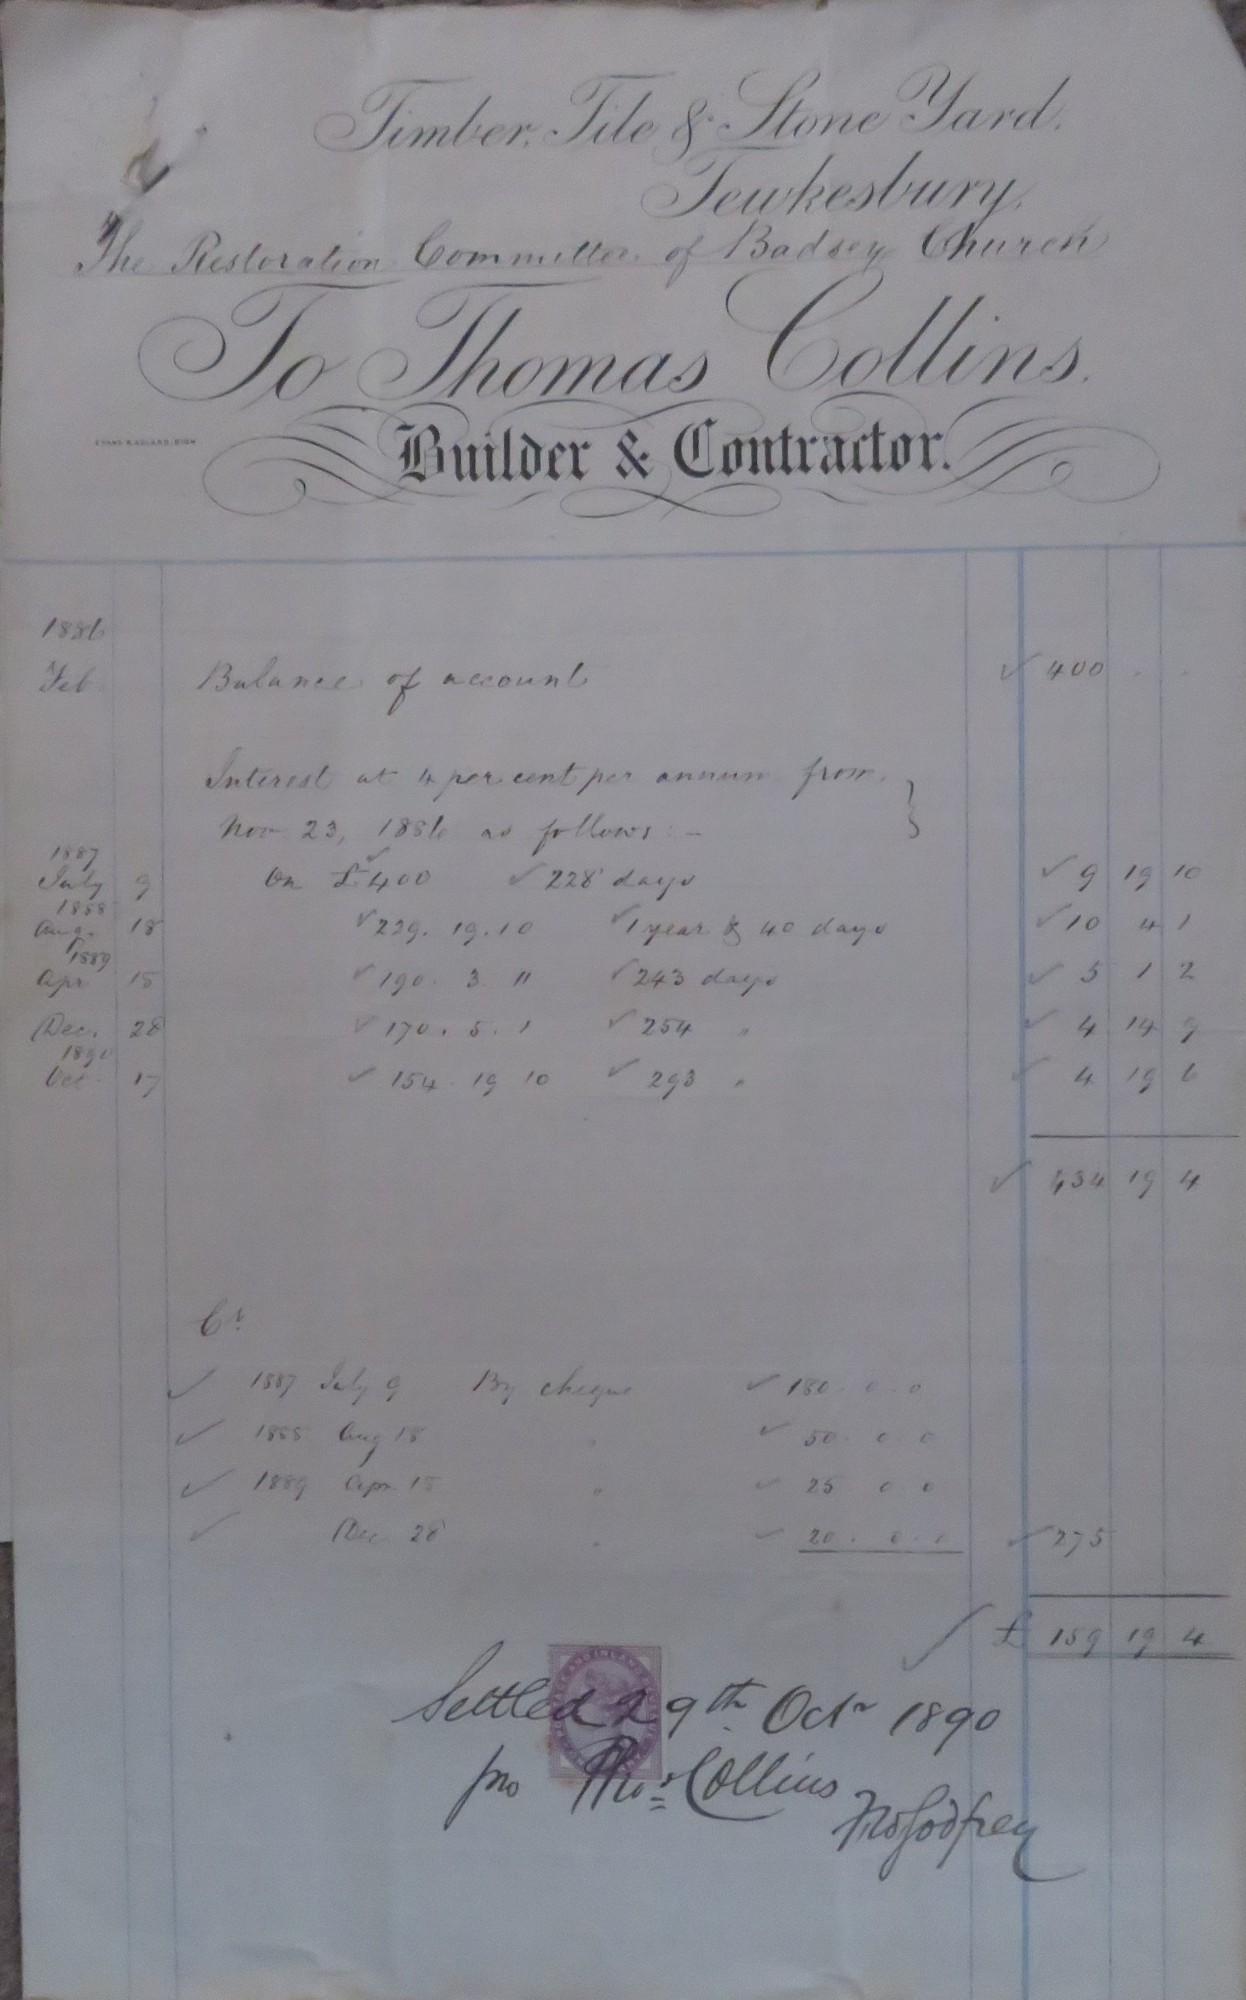 Timber, Tile & Stone Yard.
Tewkesbury.
The Restoration Committee of Badsey Church
To Thomas Collins.
Builder & Contractor.
1886
Feb Balance of account ✓ 400 . .
Interest at 4 per cent per annum from
Nov 23, 1886 as follows :-
1887
July 9 On £400 ✓ 228 days ✓ 9 19 10
1888
Aug. 18 ✓ 229. 19. 10 ✓ 1 year & 40 days ✓ 10 4 1
1889
Apr 18 ✓ 190. 3 11 ✓ 243 days ✓ 5 1 2
Dec. 28 ✓ 170. 5. 1 ✓ 254 " ✓ 4 14 9
1890
Oct. 17 ✓ 154. 19 10 ✓ 293 " ✓ 4 19 6
✓ 434 19 4
Cr
✓ 1887 July 9 By cheque ✓ 180. 0. 0
✓ 1888 Aug 18 " ✓ 50. 0 0
✓ 1889 Apr. 18 " ✓ 25 0 0
✓ Dec. 28 " ✓ 20. 0. 0 ✓ 275
✓ £ 159 19 4
Settled 29th Octr 1890
pro Thos Collins
Godfrey